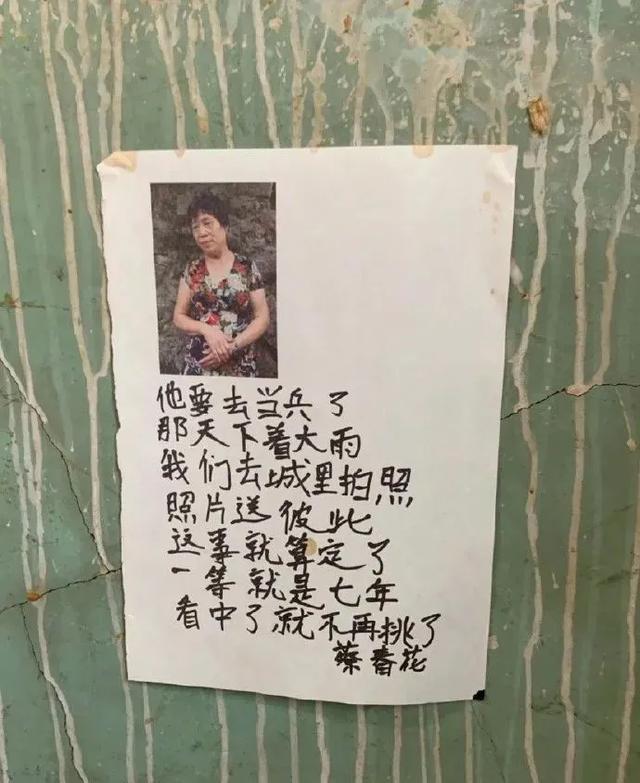 他要去当兵了
那天下着大雨
我们去城里拍照
照片送彼此
这事就算定了
一等就是七年
看中了就不再挑了
蔡春花